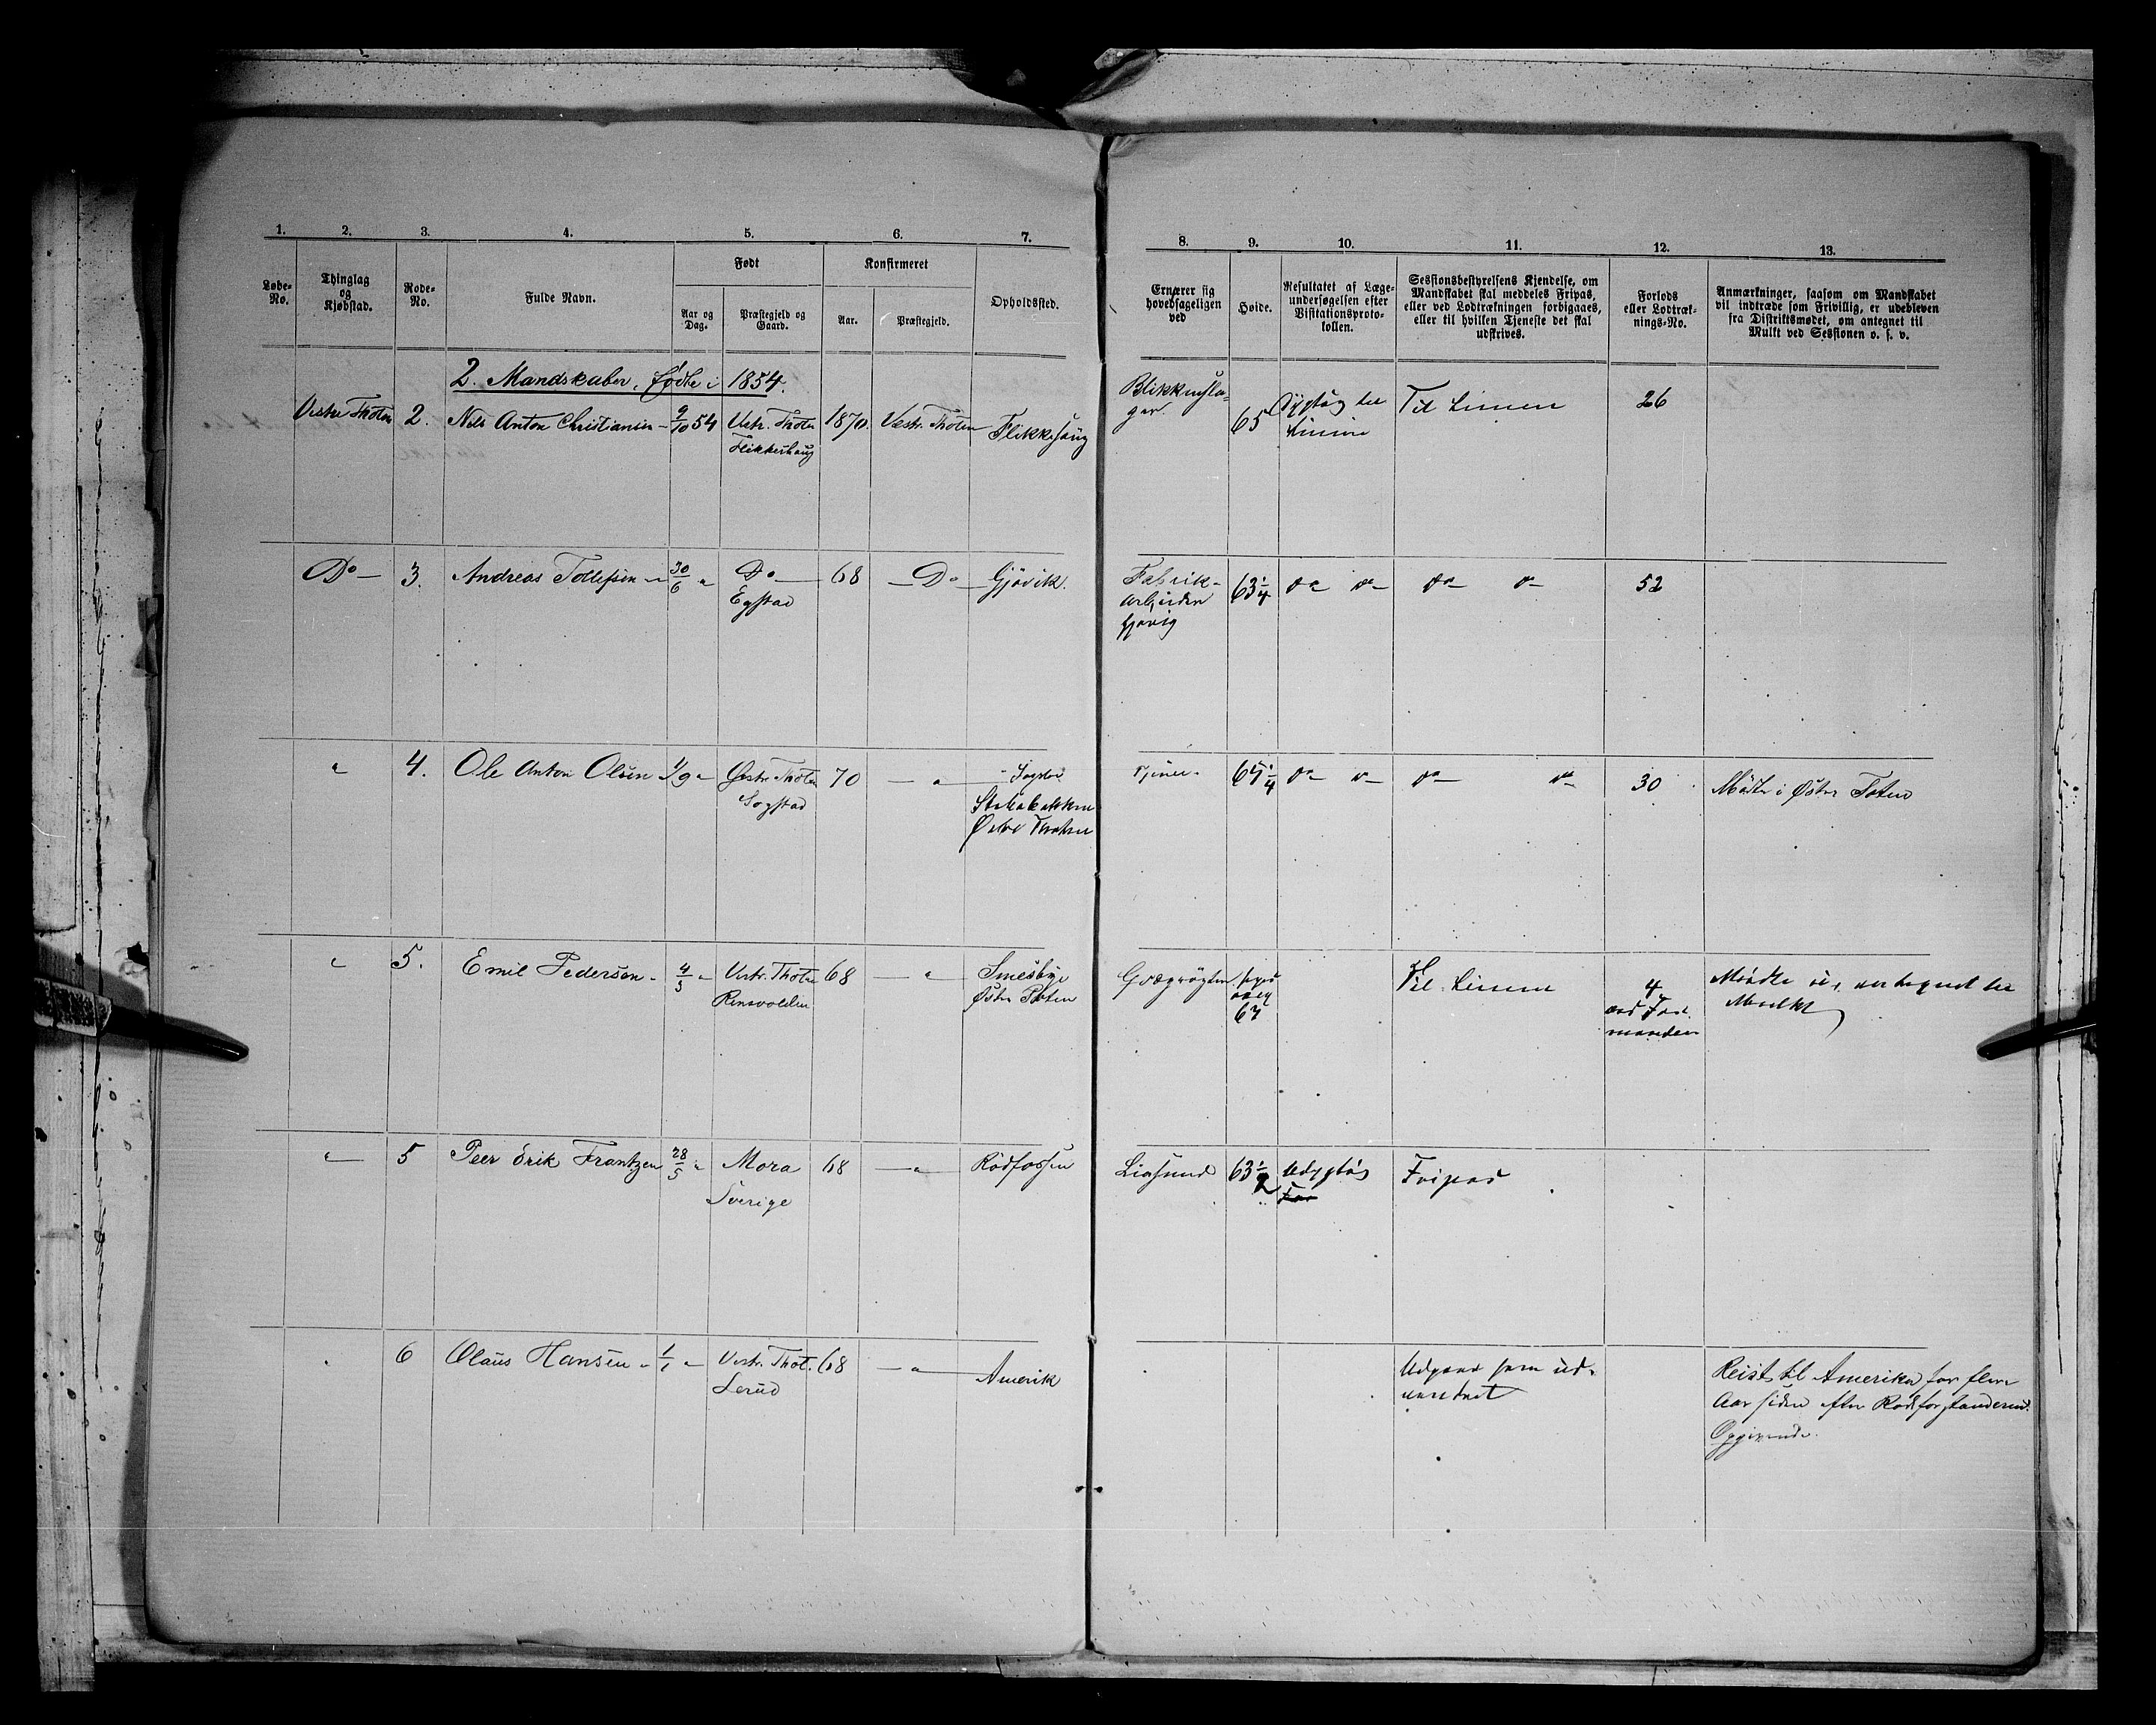 1. 2. 3. 4. 5. 6. 7.
Løbe-No. Thinglag og Kjøbstad. Rode-No. Fulde Navn. Født Konfirmeret Opholdssted.
Aar og Dag. Præstegjeld og Gaard. Aar. Præstegjeld.
8. 9. 10. 11. 12. 13.
Ernærer sig hovedsageligen ved
Høide.
Resultatet af Læge-
undersøgelsen efter
Visitationsproto-
kollen.
Sessionsbestyrelsens Kjendelse, om
Mandskabet skal meddeles Fripas,
eller ved Lodtrækningen forbigaaes,
eller til hvilken Tjeneste det skal
udskrives.
Forlods
eller Lodtræk-
nings-No.
Anmærkninger, saasom om Mandskabet
vil indtræde som Frivillig, er udebleven
fra Distriktsmødet, om antegnet til
Mulkt ved Sessionen o. s. v.
2. Mandskaber, fødte i 1854.
Vestre Thoten 2. Nils Anton Christiansen - 9/10 54 Vestr. Thoten 1870. Vestr. Thoten
Flikkeshaug
Blikkensla-
ger. 65 Dygtig til Til Linien 26
Linien
Do 3. Andreas Tollefsen 30/6 " Do 68 Do Gjøvik.
Egstad
Fabrik- 63 1/4 do do do do 52
arbeider
Gjøvig
" 4. Ole Anton Olsen 1/9 " Østr. Thoten 70 "
Sogstad
Østre Thoten
Tjener do do do do 30 Mødte i Østre Toten
" 5. Emil Pedersen - " Vestr. Thoten 68 " Smesbye
Rensvolden Østre Toten
67 Til Linien 4 Mødte ei, antegnet til
Mulkt
" 5 Peer Erik Frantzen 28/5 " Mora 68 " Rødfossen
Sverige
63 1/2 Udygtig Fripas
6 Olaus Hansen 1/1 " Vestr. Thot. 68 " Amerik
Lerud
Udgaar som ud-
vandret
Reist til Amerika for flere
Aar siden efter Rodeforstanderens
Opgivende.